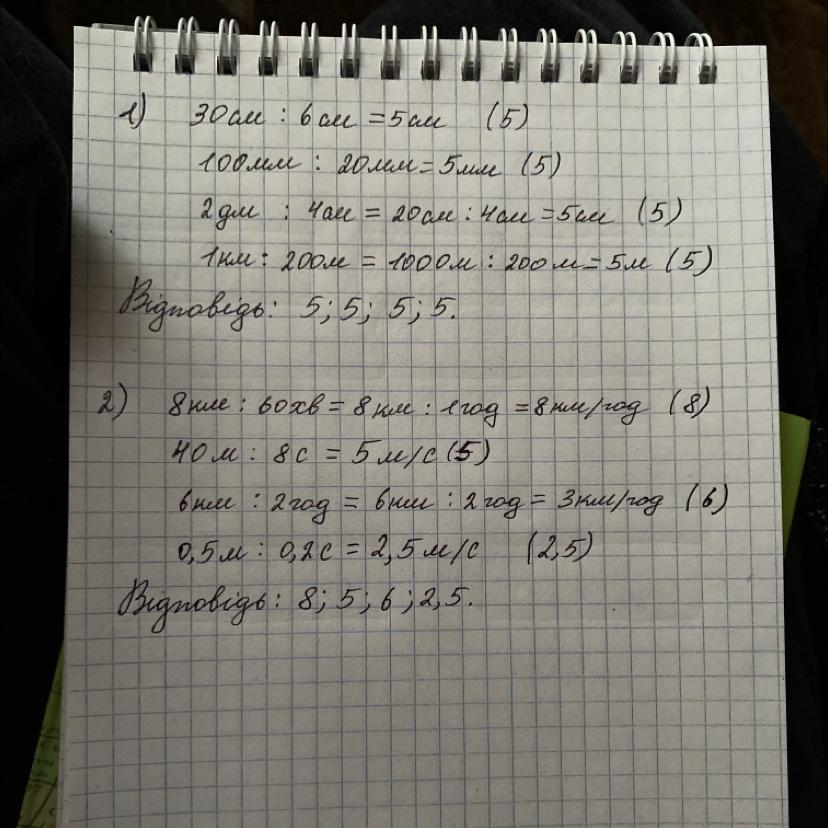 1) 30см : 6см = 5см (5)
100мм : 20мм = 5мм (5)
2дм : 4см = 20см : 4см = 5см (5)
1км : 200м = 1000м : 200м = 5м (5)
Відповідь: 5; 5; 5; 5.
2) 8км : 60хв = 8км : 1год = 8км/год (8)
40м : 8с = 5м/с (5)
6км : 2год = 6км : 2год = 3км/год (6)
0,5м : 0,2с = 2,5м/с (2,5)
Відповідь: 8; 5; 6; 2,5.